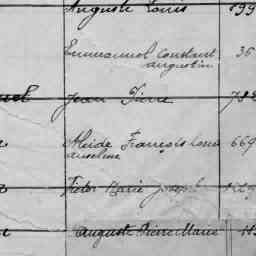 Auguste Louis 199
Emmanuel Constant 36
Augustin
Jean Pierre
Alcide François Louis 669
Anselme
Victor Marie Joseph
Auguste Pierre Marie